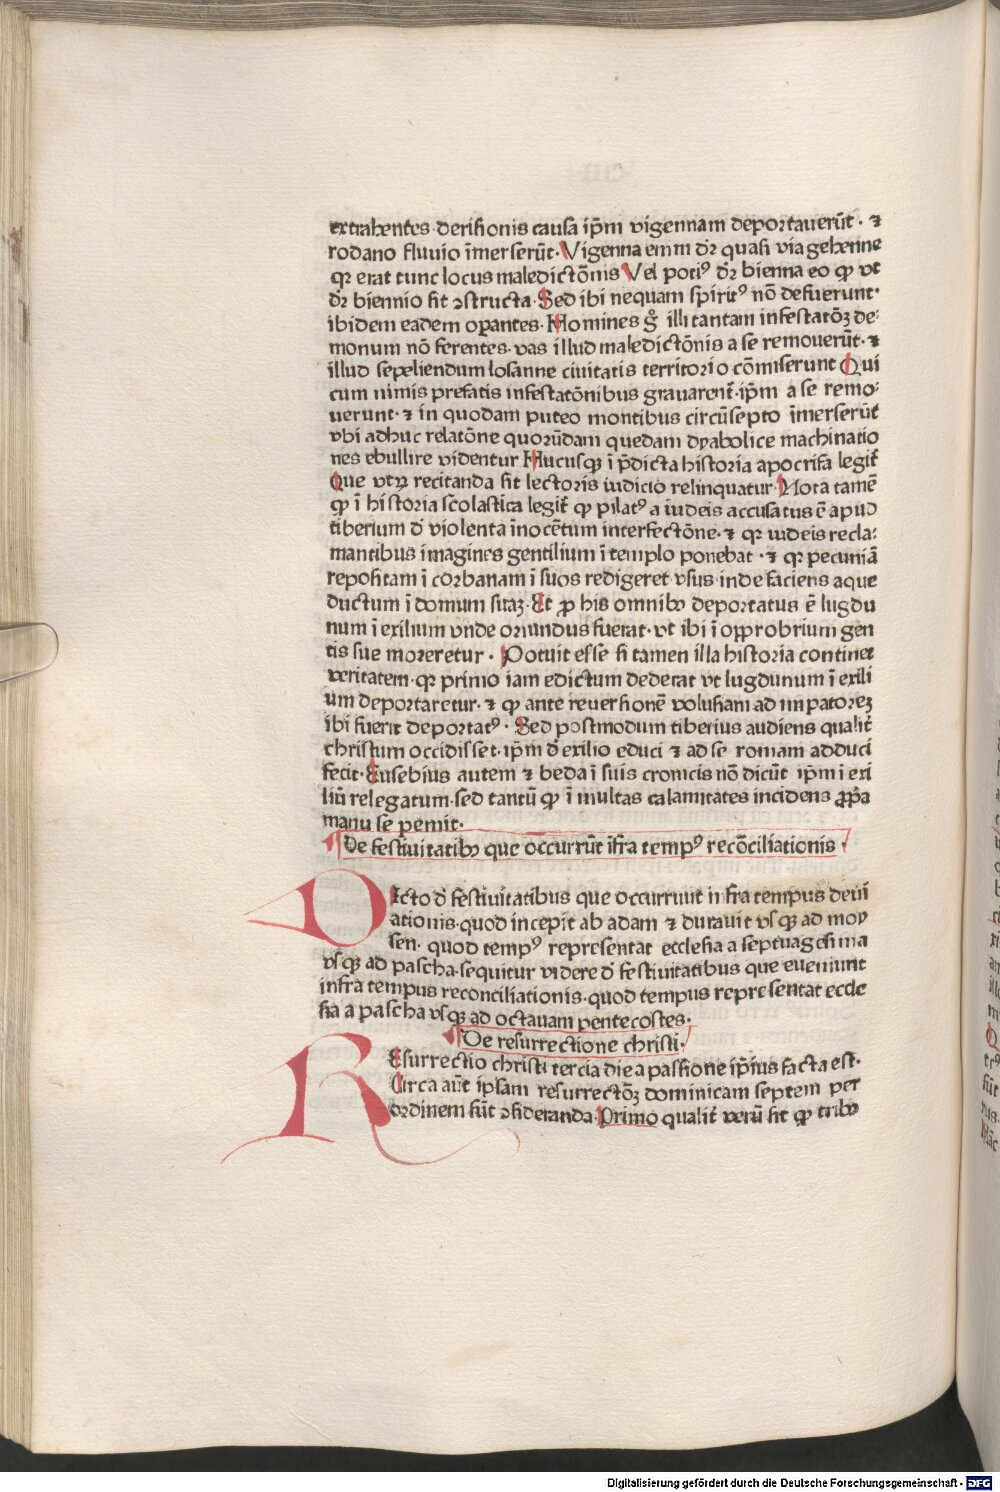 extrahentes derisionis causa ip̄m vigennam deportauerūt · ⁊
rodano fluuio īmerserūt · Vigenna enim dr̄ quasi via gehenne
qꝛ erat tunc locus maledictōnis Vel potiꝰ dr̄ bienna eo ꝙ vt
dr̄ biennio sit ↄstructa · Sed ibi nequam spiritꝰ nō defuerunt ·
ibidem eadem oꝑantes · Homines gͦ illi tantam infestatōꝫ de⸗
monum nō ferentes · vas illud maledictōnis a se remouerūt · ⁊
illud sepeliendum losanne ciuitatis territorio cōmiserunt Qui
cum nimis prefatis infestatōnibus grauarent᷑ · ip̄m a se remo⸗
uerunt · ⁊ in quodam puteo montibus circūsepto īmerserūt
vbi adhuc relatōne quorūdam quedam dyabolice machinatio
nes ebullire videntur Hucusqꝫ ī p̄dicta historia apocrifa legit᷑
Que vtꝝ recitanda sit lectoris iudicio relinquatur · Nota tamē
ꝙ ī historia scolastica legit᷑ ꝙ pilatꝰ a iudeis accusatus ē apud
tiberium de̾ violenta īnocētum interfectōne · ⁊ qꝛ iudeis recla⸗
mantibus imagines gentilium ī templo ponebat · ⁊ qꝛ pecuniā
repositam ī corbanam ī suos redigeret vsus inde faciens aque
ductum ī domum suaꝫ · Et ꝓ his omnibꝰ deportatus ē lugdu
num ī exilium vnde oriundus fuerat · vt ibi ī opprobrium gen
tis sue moreretur · Potuit esse si tamen illa historia continet
veritatem · qꝛ primo iam edictum dederat vt lugdunum ī exili
um deportaretur · ⁊ ꝙ ante reuersionē volusiani ad imꝑatoreꝫ
ibi fuerit deportatꝰ · Sed postmodum tiberius audiens qualit᷑
christum occidisset · ip̄m de̾ exilio educi ⁊ ad se romam adduci
fecit · Eusebius autem ⁊ beda ī suis cronicis nō dicūt ip̄m ī exi
liū relegatum · sed tantū ꝙ ī multas calamitates incidens ꝓp̄a
manu se pemit ·
De festiuitatibꝰ que occurrūt īfra tempꝰ recōciliationis ·
Dicto de̾ festiuitatibus que occurrunt infra tempus deui
ationis · quod incepit ab adam ⁊ durauit vsqꝫ ad moy
sen · quod tempꝰ representat ecclesia a septuagesima
vsqꝫ ad pascha · sequitur videre de̾ festiuitatibus que eueniunt
infra tempus reconciliationis · quod tempus representat eccle
sia a pascha vsqꝫ ad octauam pentecostes ·
De resurrectione christi ·
REsurrectio christi tercia die a passione ip̄ius facta est ·
Circa aūt ipsam resurrectōꝫ dominicam septem per
ordinem sūt ↄsideranda · Primo qualit᷑ verū sit ꝙ tribꝰ
Digitalisierung gefördert durch die Deutsche Forschungsgemeinschaft - DFG